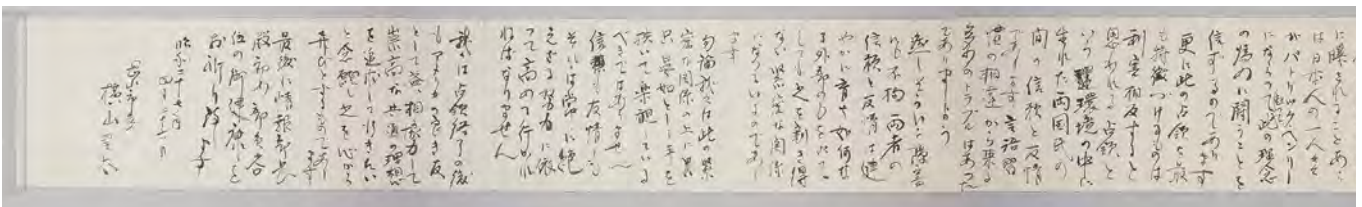 に曝されることあら
は日本人の一人々々
がパトリックヘンリー
になつて此の理念
の為めに闘うことを
信ずるのであります
更に此の占領を最
も特徴づけるものは
利害相反すると
思われる占領と
いう環境の中に
生れた両国民の
間の信頼と友情
であります 言語習
慣の相違から来る
多少のトラブルはあつた
でありましよう
然しそういつた障害
にも不拘両者の
信頼と友情は健
やかに育ち如何な
る外部の力を以つて
しても之を割き得
ない緊密な関係
になつているのであり
ます
勿論我々は此の緊
密な関係の上に
只晏如として手を
拱いて楽観している
べきではありません
信頼と友情
は常に絶
えざる努力に依
つて高めて行か
ねばなりません
我々は占領終了の後
もアメリカの良き友
として益々相協力して
崇高な共通の理想
を追求して行きたい
と念願し之を心から
とするものであり
ます
最後に情報部長
殿初め部員各
位の御健康を
お祈り致します
昭和二十七年
四月二十一日
横山